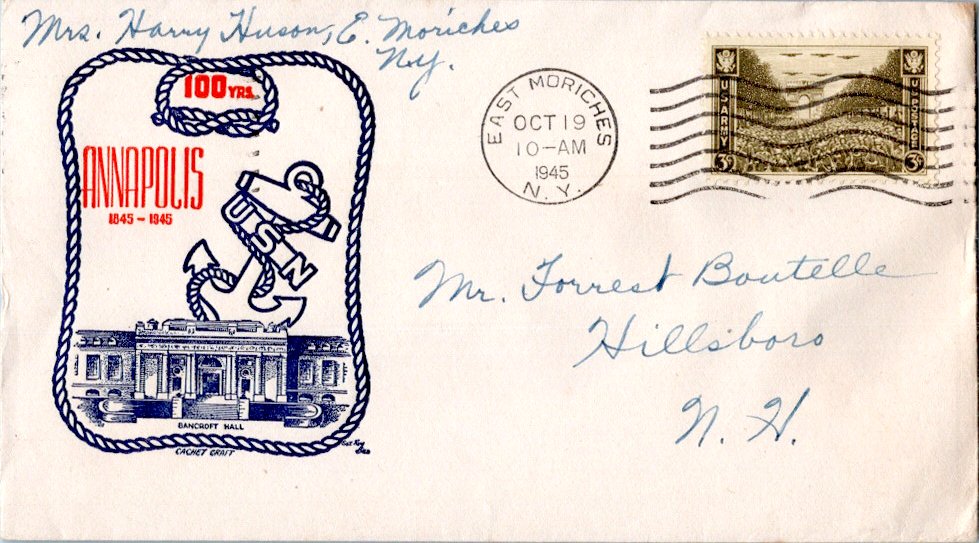 Mrs. Harry Huson, E. Moriches
N.Y.
100 YRS.
ANNAPOLIS
1845 - 1945
USN
BANCROFT HALL
CACHET CRAFT
EAST MORICHES
OCT 19
10-AM
1945
N.Y.
U.S. ARMY
U.S. POSTAGE
3¢
3¢
Mr. Forrest Boutelle
Hillsboro
N. H.